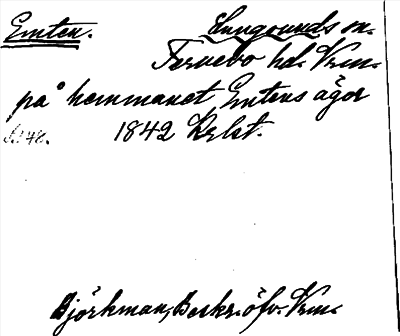 Emten. Lungsunds sn.
Fernebo hd. Vrm.
på hemmanet Emtens ägor
1842 Relst.
Björkman, Beskr. öfv. Vrm.